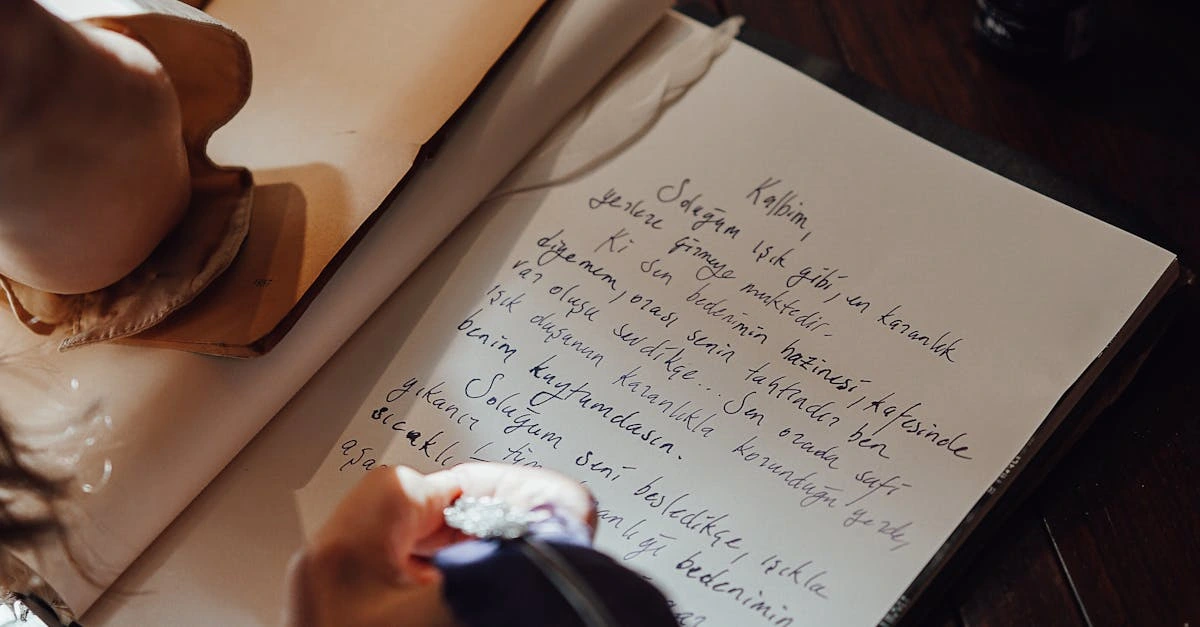 Kalbim,
Soluğum ışık gibi, en karanlık
yerlere girmeye muktedir.
Ki sen bedenimin hazinesi, kafesinde
diyemem, orası senin tahtındır ben
var oluşu sevdikçe... Sen orada safi
ışık duşunun karanlıkla korunduğu yerde,
benim kuytumdasın.
Soluğum seni besledikçe, ışıkla
yıkanır tüm bedenimin